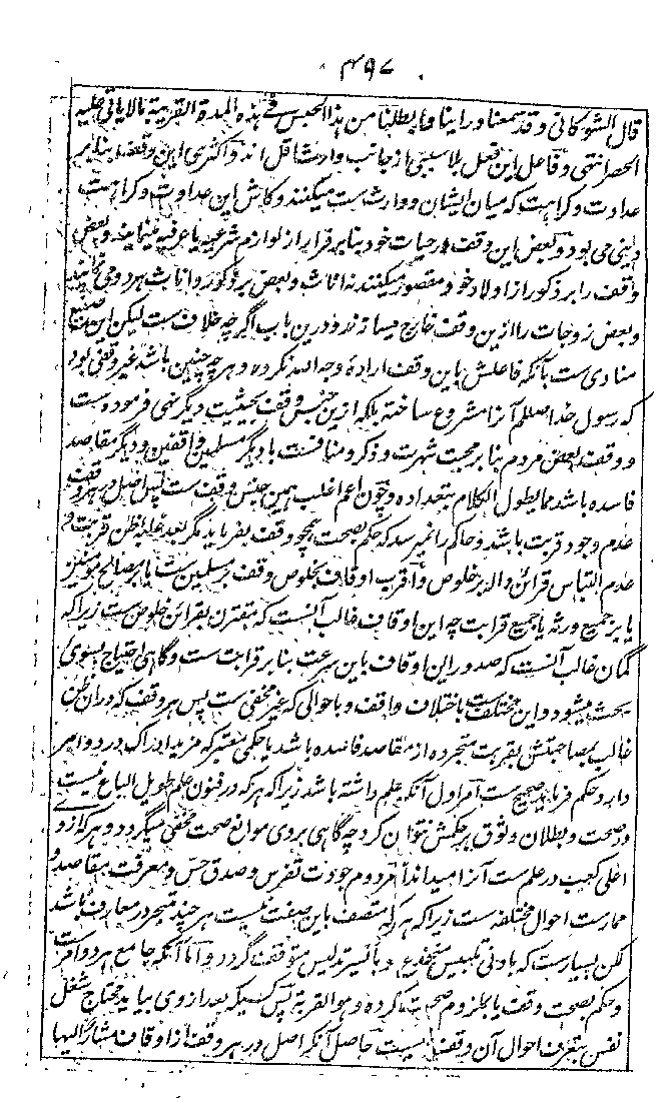 ۴۹۷
قال الشوکانی وقد سمعنا وراینا وما بطلنا من هذا الجنس فی هذه المدة القریبة ما لا یاتی علیه
الحصر انتهی وفاعل این فعل بلا سببی از جانب وارث اند واکثری این وقفها بنابر
عداوت وکراهت که میان ایشان ووارث ست میکنند وکاش این عداوت وکراهت
دینی می بود وبعض این وقف در حیات خود بنابر فرار از لوازم شرعیه یا عرفیه وبعض
وقف را بر ذکور از اولاد خود مقصور میکنند نه اناث وبعض بر ذکور واناث هر دو می
وبعض زوجات را ازین وقف خارج میسازند ودرین باب اگرچه خلاف ست لیکن این صنیع
منادی ست بآنکه فاعلش باین وقف اراده وجه الله نکرده وهر چه چنین باشد غیر وقفی بود
که رسول خدا صلعم آنرا مشروع ساخته بلکه ازین جنس وقف بحیثیت دیگر نهی فرموده ست
ووقف بعض مردم بنابر محبت شهرت وذکر ومنافست با دیگر مسلمین واقفین ودیگر مقاصد
فاسده باشد مما یطول الکلام بتعداده وچون اعم اغلب همین جنس وقف ست پس اصل در هر وقف
عدم وجود قربت باشد وحاکم را نمیرسد که حکم بصحت هیچو وقف بفرماید مگر بعد غلبه ظن قربت و
عدم التباس قرائن داله بر خلوص واقرب اوقاف بخلوص وقف بر مسلمین ست یا بر مصالح مومنین
یا بر جمیع ورثه یا جمیع قرابت چه این اوقاف غالب آنست که مقترن بقرائن خلوص ست زیرا که
گمان غالب آنست که صدور این اوقاف باین سرعت بنابر قرابت ست وگاهی احتیاج بسوی
بحث میشود واین مختلف ست باختلاف واقف وباحوالی که غیر مخفی ست پس هر وقف که دران ظن
غالب بمصاحبتش بقربت متجرده از مقاصد فاسده باشد یا حکمی معتبر که مزید ادراک در دو امر
دارد حکم فرماید صحیح ست امر اول آنکه علم داشته باشد زیرا که هر که در فنون علم طویل الباع نیست
در صحت وبطلان وثوق بر حکمش نتوان کرد چه گاهی بروی موانع صحت مخفی میگردد وهر که از وی
اعلی کعب در علم ست آنرا میداند امر دوم جودت تفرس وصدق حس ومعرفت بمقاصد و
ممارست احوال مختلفه ست زیرا که هر که متصف باین صفت نیست هر چند متبحر در معارف باشد
لکن بسیارست که بادنی تلبیس منخدع وبایسر تدلیس متوقف گردد واما آنکه جامع هر دو امر ست
وحکم بصحت وقف یا بلزوم صحت کرده وهو القربة پس کسیکه بعد از وی بیاید محتاج شغل
نفس بتعرف احوال آن وقف نیست حاصل آنکه اصل در هر وقف از اوقاف مشار الیها